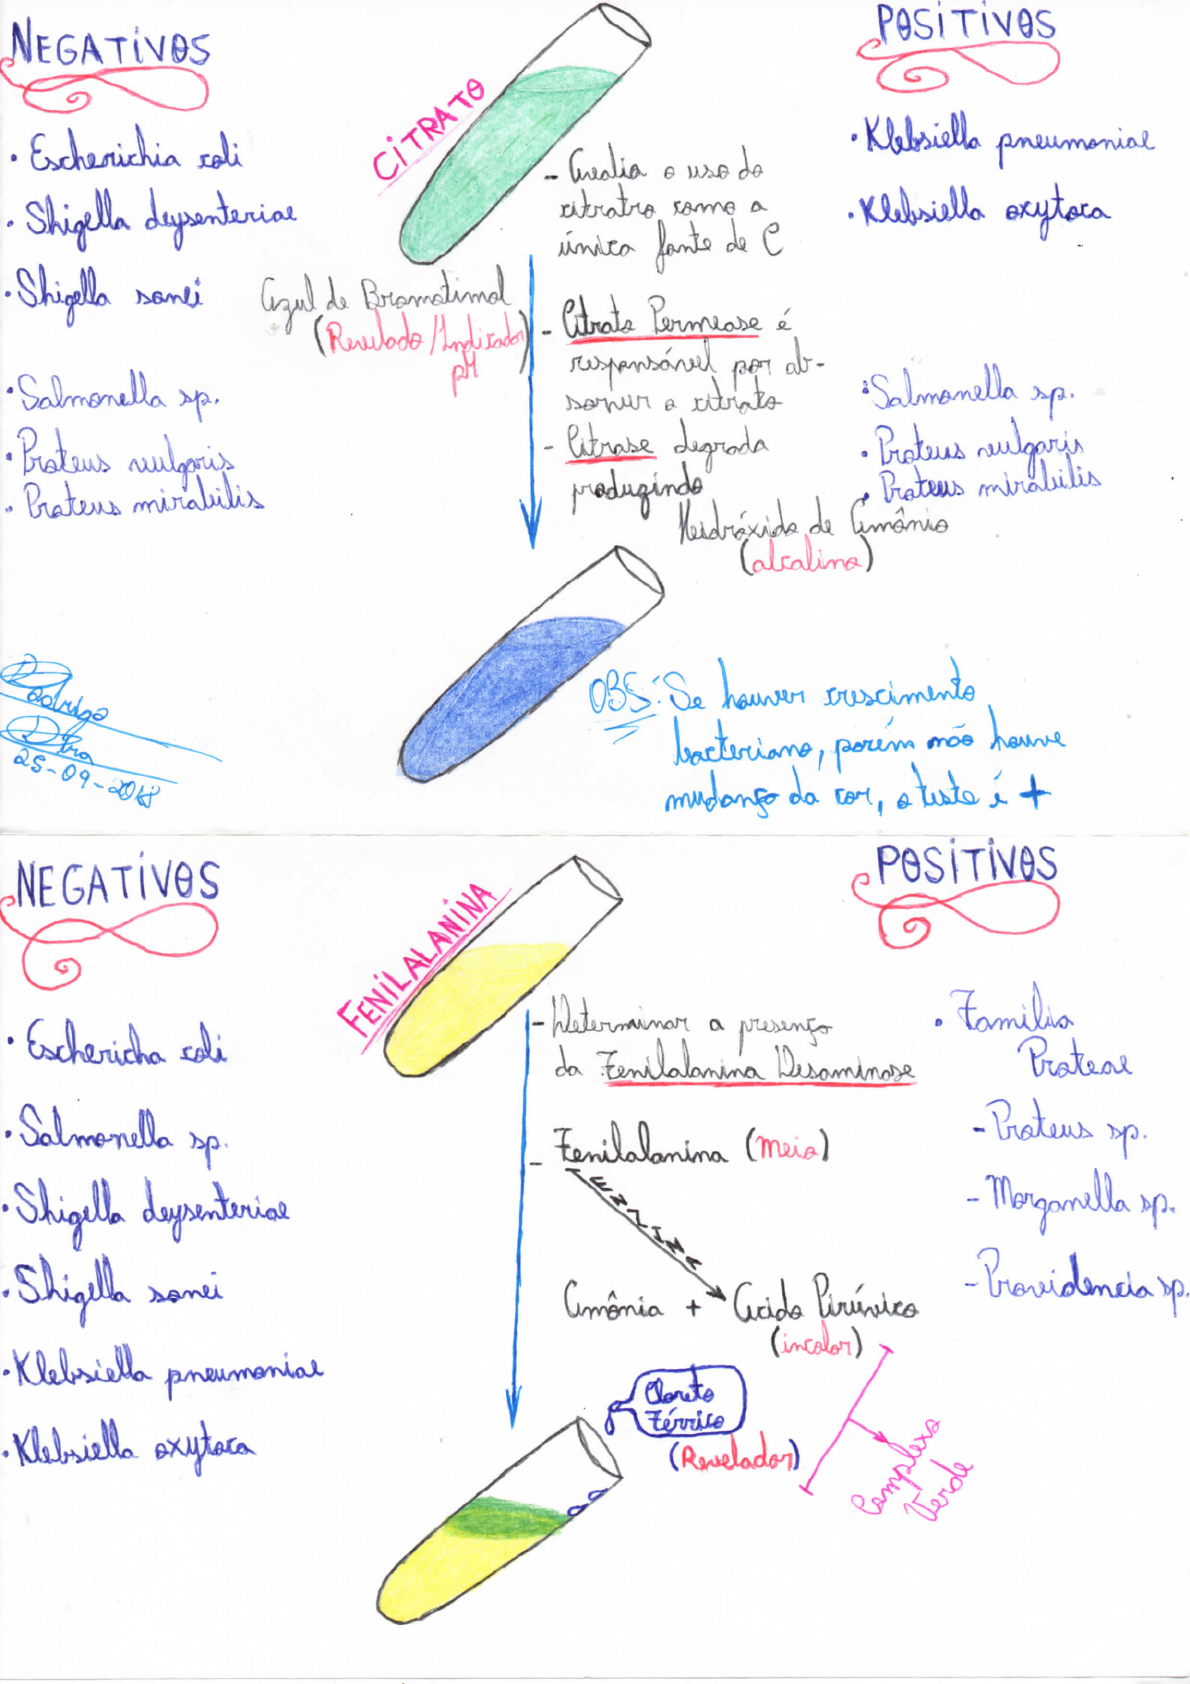 NEGATIVOS
• Escherichia coli
• Shigella deysenteriae
• Shigella sonei
• Salmonella sp.
• Proteus vulgaris
• Proteus mirabilis
CITRATO
- Avalia o uso do
citratro como a
única fonte de C
Azul de Bromotimol
(Revelado/Indicador
pH)
- Citrato Permease é
responsável por ab-
sorver o citrato
- Citrase degrada
produzindo
Heidróxido de Amônio
(alcalino)
POSITIVOS
• Klebsiella pneumoniae
• Klebsiella oxytoca
• Salmonella sp.
• Proteus vulgaris
• Proteus mirabilis
Rodrigo
25-09-2018
OBS: Se houver crescimento
bacteriano, porém não houve
mudança da cor, o teste é +
NEGATIVOS
• Eschericha coli
• Salmonella sp.
• Shigella deysenteriae
• Shigella sonei
• Klebsiella pneumoniae
• Klebsiella oxytoca
FENILALANINA
- Determinar a presença
da Fenilalanina Desaminase
- Fenilalanina (meio)
ENZIMA
Amônia + Ácido Pirúvico
(incolor)
Cloreto
Férrico
(Revelador)
Complexo
Verde
POSITIVOS
• Família
Proteae
- Proteus sp.
- Morganella sp.
- Providencia sp.